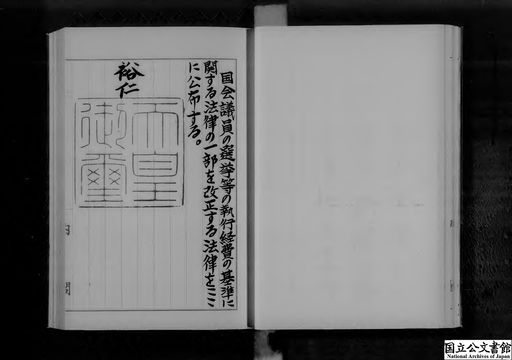 国会議員の選挙等の執行経費の基準に
関する法律の一部を改正する法律をここ
に公布する。
裕仁
天皇
御璽
国立公文書館
National Archives of Japan